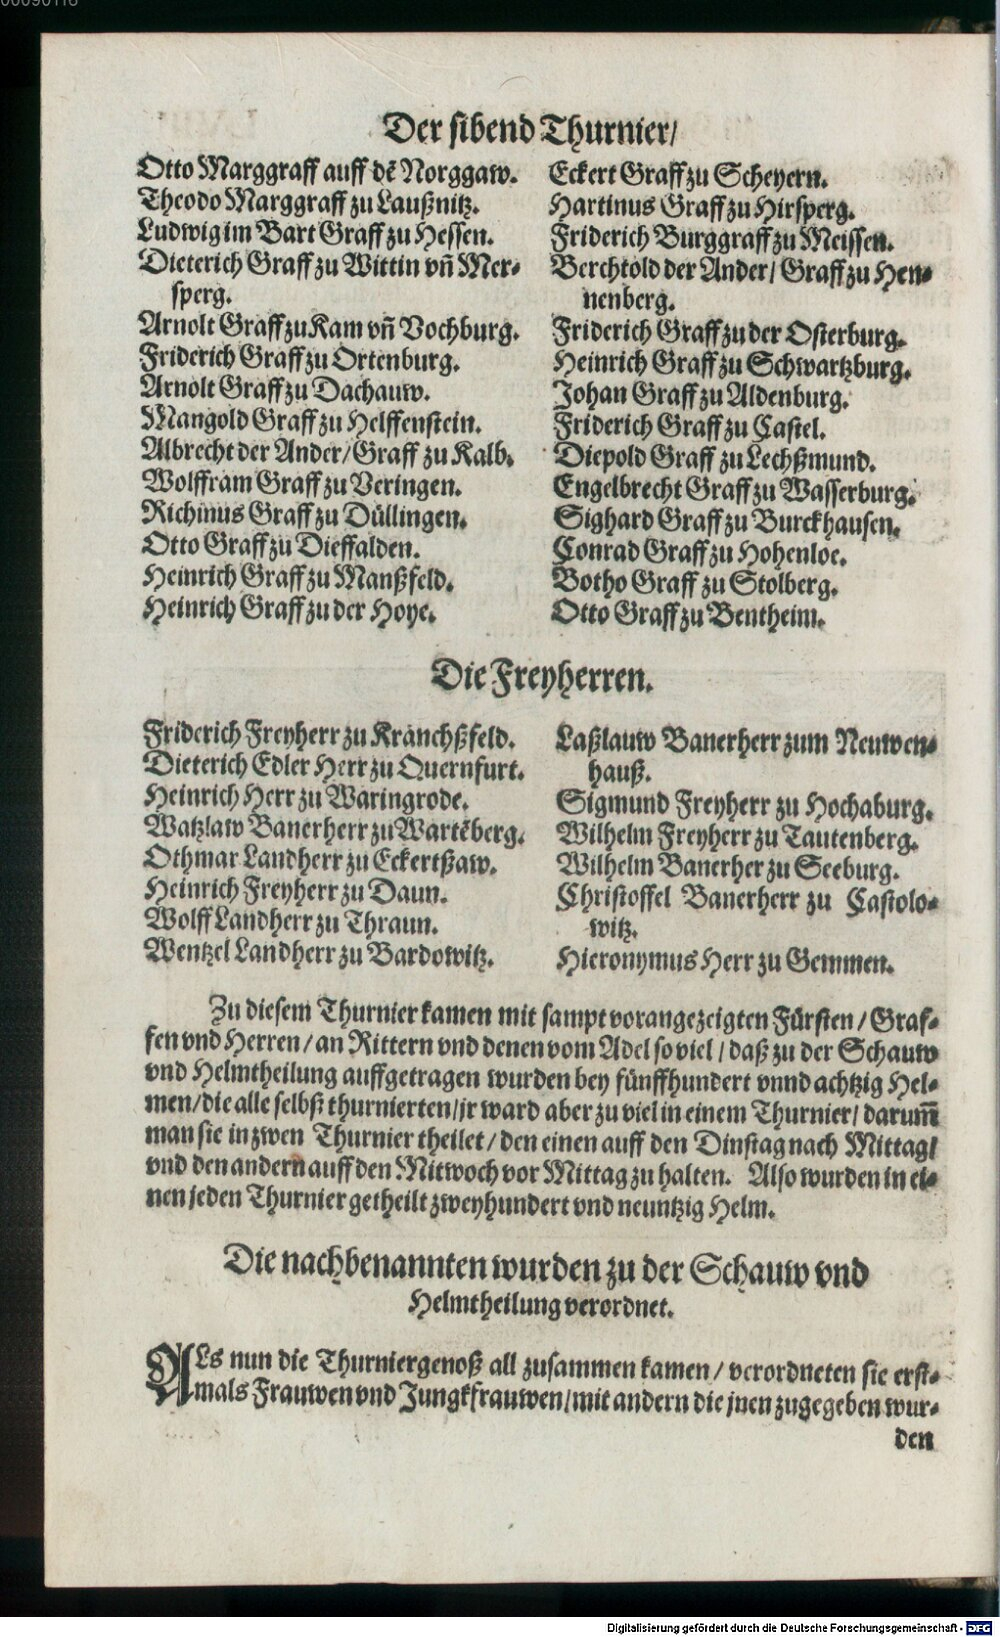 Der sibend Thurnier/
Otto Marggraff auff dẽ Norggaw.
Theodo Marggraff zu Laußnitz.
Ludwig im Bart Graff zu Hessen.
Dieterich Graff zu Wittin vñ Mer-
sperg.
Arnolt Graff zu Kam vñ Vochburg.
Friderich Graff zu Ortenburg.
Arnolt Graff zu Dachauw.
Mangold Graff zu Helffenstein.
Albrecht der Ander/Graff zu Kalb.
Wolffram Graff zu Veringen.
Richinus Graff zu Düllingen.
Otto Graff zu Dieffalden.
Heinrich Graff zu Manßfeld.
Heinrich Graff zu der Hoye.
Eckert Graff zu Scheyern.
Hartinus Graff zu Hirsperg.
Friderich Burggraff zu Meissen.
Berchtold der Ander/ Graff zu Hen-
nenberg.
Friderich Graff zu der Osterburg.
Heinrich Graff zu Schwartzburg.
Johan Graff zu Aldenburg.
Friderich Graff zu Castel.
Diepold Graff zu Lechßmund.
Engelbrecht Graff zu Wasserburg.
Sighard Graff zu Burckhausen.
Conrad Graff zu Hohenloe.
Botho Graff zu Stolberg.
Otto Graff zu Bentheim.
Die Freyherren.
Friderich Freyherr zu Kranchßfeld.
Dieterich Edler Herr zu Quernfurt.
Heinrich Herr zu Waringrode.
Watzlaw Banerherr zu Wartẽberg.
Othmar Landherr zu Eckertßaw.
Heinrich Freyherr zu Daun.
Wolff Landherr zu Thraun.
Wentzel Landherr zu Bardowitz.
Laßlauw Banerherr zum Neuwen-
hauß.
Sigmund Freyherr zu Hochaburg.
Wilhelm Freyherr zu Tautenberg.
Wilhelm Banerher zu Seeburg.
Christoffel Banerherr zu Castolo-
witz.
Hieronymus Herr zu Gemmen.
Zu diesem Thurnier kamen mit sampt vorangezeigten Fürsten/ Graf-
fen vnd Herren/ an Rittern vnd denen vom Adel so viel/ daß zu der Schauw
vnd Helmtheilung auffgetragen wurden bey fünffhundert vnnd achtzig Hel-
men/die alle selbß thurnierten/jr ward aber zu viel in einem Thurnier/ darum̃
man sie in zwen Thurnier theilet/ den einen auff den Dinstag nach Mittag/
vnd den andern auff den Mitwoch vor Mittag zu halten. Also wurden in ei-
nen jeden Thurnier getheilt zweyhundert vnd neuntzig Helm.
Die nachbenannten wurden zu der Schauw vnd
Helmtheilung verordnet.
ALs nun die Thurniergenoß all zusammen kamen/ verordneten sie erst-
mals Frauwen vnd Jungkfrauwen/mit andern die jnen zugegeben wur-
den
Digitalisierung gefördert durch die Deutsche Forschungsgemeinschaft - DFG